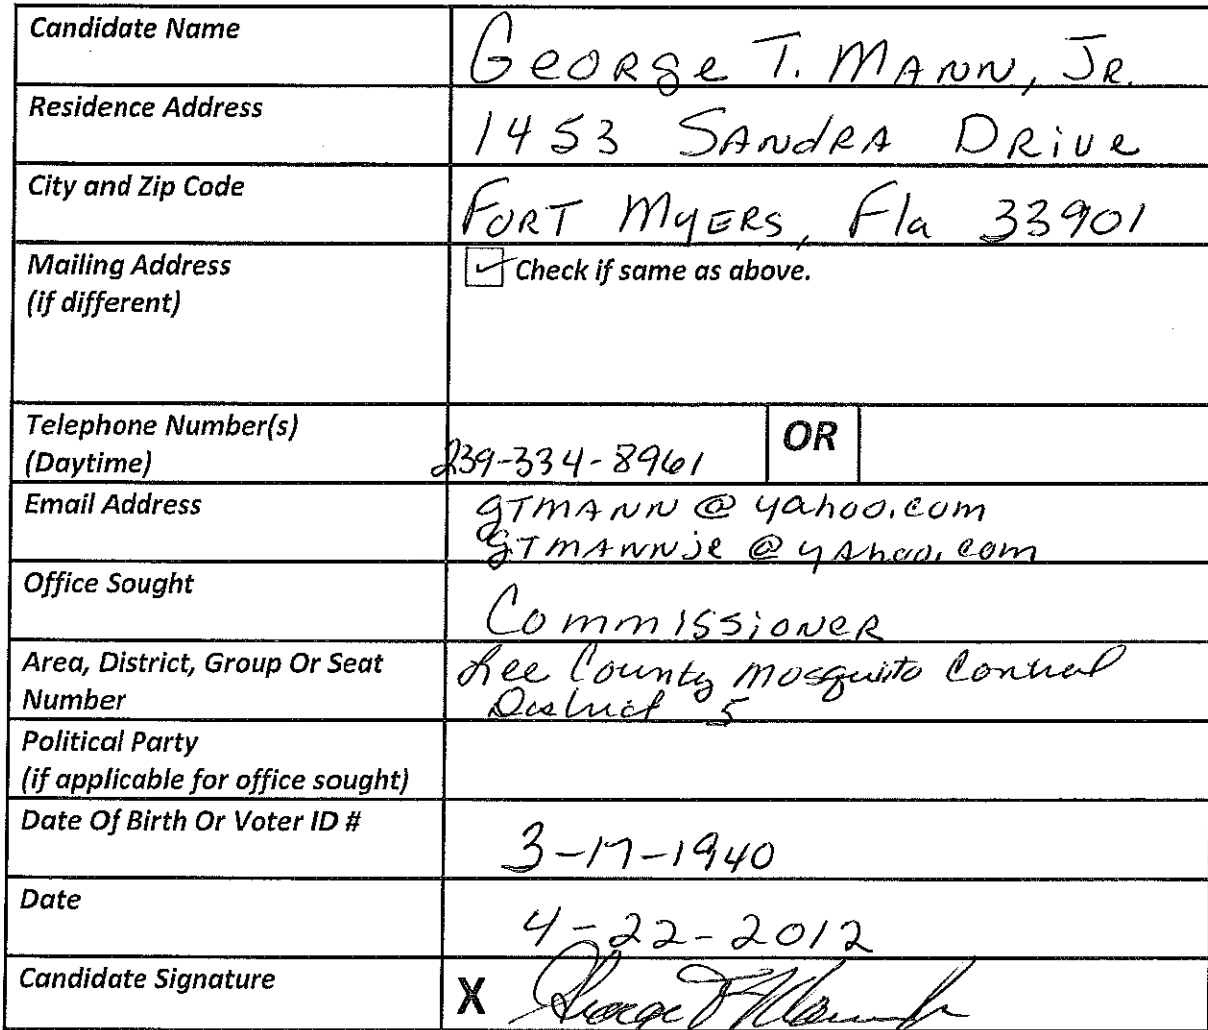 Candidate Name George T. Mann, Jr.
Residence Address 1453 Sandra Drive
City and Zip Code Fort Myers, Fla 33901
Mailing Address
(if different)
Check if same as above.
Telephone Number(s)
(Daytime)
239-334-8961 OR
Email Address gtmann@yahoo.com
gtmannjr@yahoo.com
Office Sought Commissioner
Area, District, Group Or Seat
Number
Lee County Mosquito Control
District 5
Political Party
(if applicable for office sought)
Date Of Birth Or Voter ID # 3-17-1940
Date 4-22-2012
Candidate Signature X George T Mann Jr